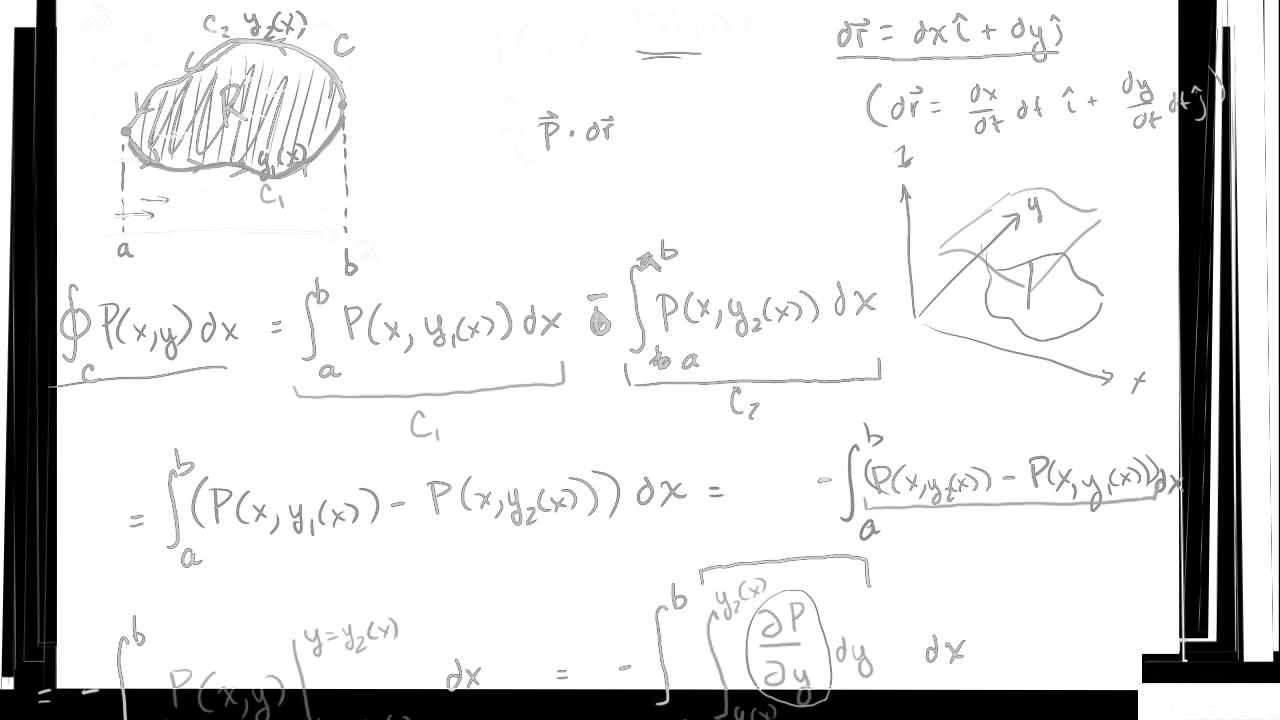 C₂ y₂(x)
C
R
y₁(x)
C₁
a
b
P⃗ · dr⃗
dr⃗ = dx î + dy ĵ
(dr⃗ = dx/dt dt î + dy/dt dt ĵ)
z
y
x
∮_C P(x,y) dx = ∫_a^b P(x, y₁(x)) dx - ∫_a^b P(x, y₂(x)) dx
C₁
C₂
= ∫_a^b (P(x, y₁(x)) - P(x, y₂(x))) dx = - ∫_a^b (P(x, y₂(x)) - P(x, y₁(x))) dx
= - ∫^b P(x,y) |^{y=y₂(x)} dx = - ∫^b ∫_{y₁(x)}^{y₂(x)} ∂P/∂y dy dx